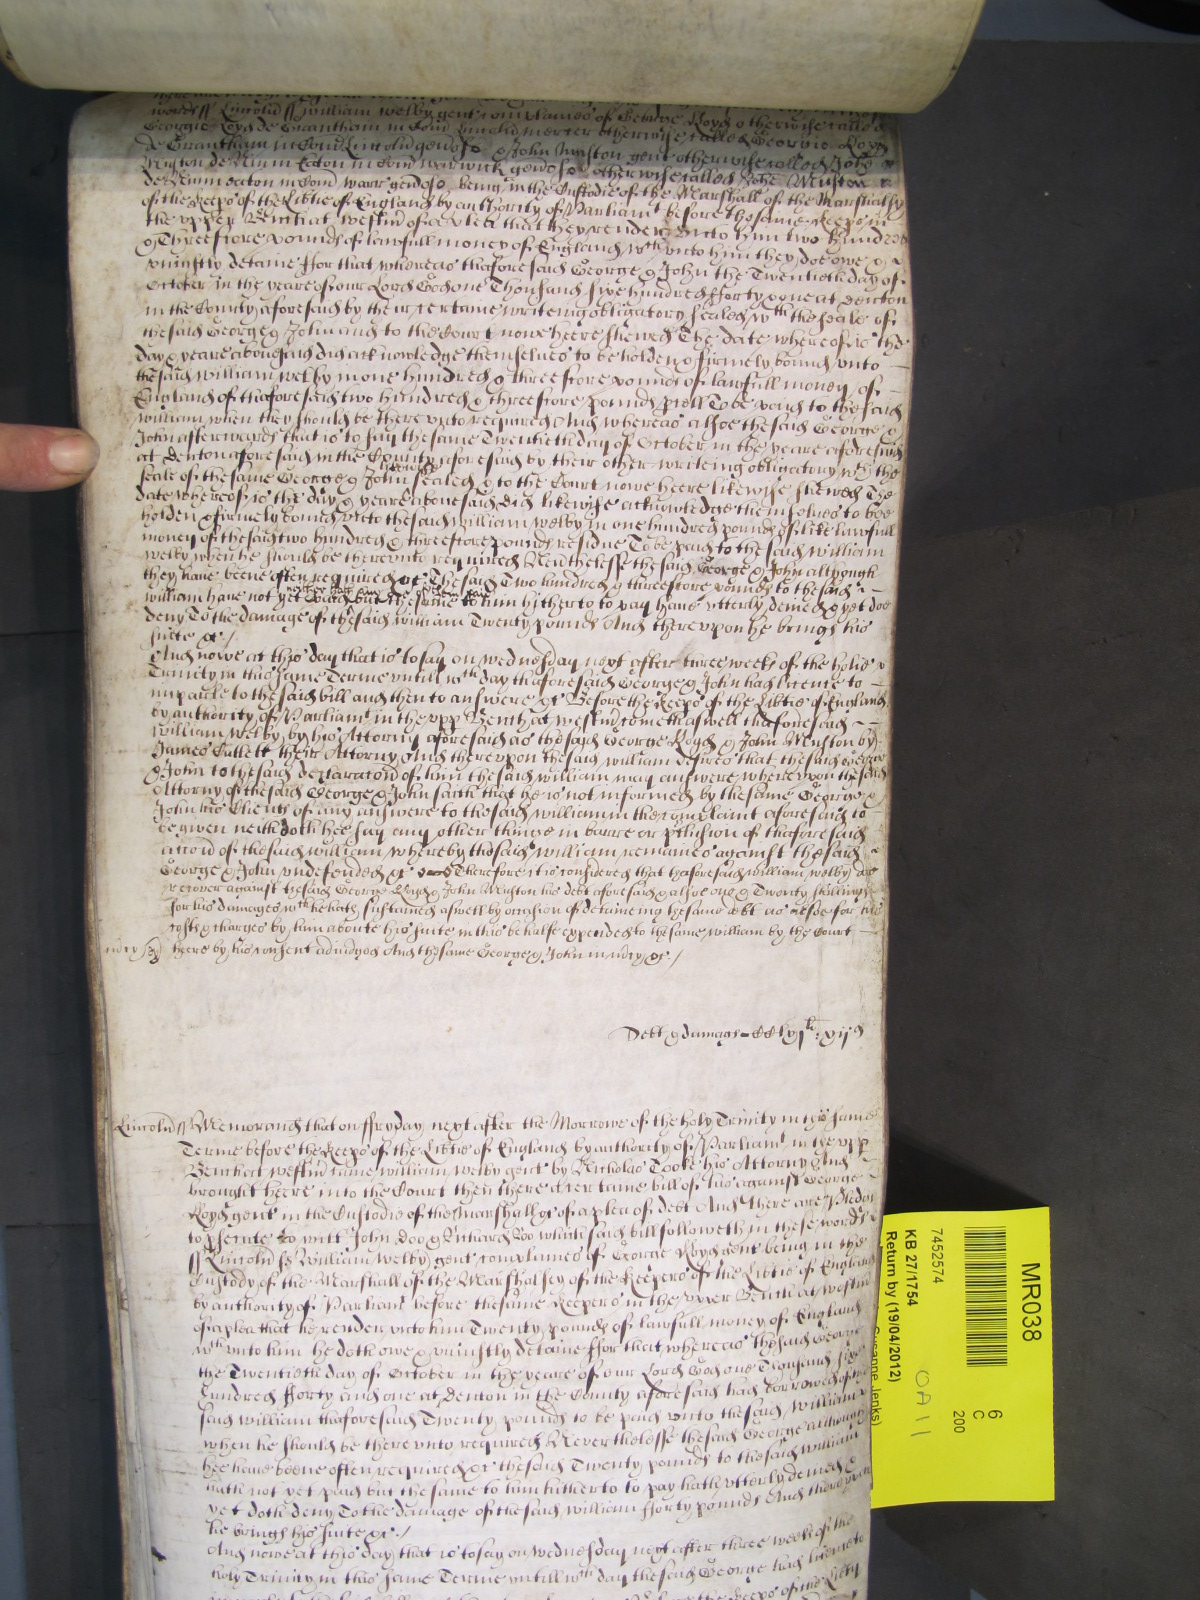 words ss Lincoln ss William Welby gent complaines of George Royd otherwise called
George Royd de Grantham in Com Lincoln mercer otherwise called George Royd
de Grantham in Com Lincoln & John Winston gent otherwise called John
Winston de Nun Eaton in Com Warwick otherwise called John Winston
de Nun eaton in Com Warr being in the Custodie of the Marshall of the Marshalsey
of the Keeps of the Libtie of England by authority of Parliamt before the same Keeps in
the upper Bench at Westm of a plea that they render unto him two hundred
& Threescore pounds of lawfull money of England wch unto him they doe owe &
uniustly detaine ffor that whereas thaforesaid George & John the Twentieth day of
October in the yeare of our Lord God one Thousand sixe hundred fforty & one at Denton
in the County aforesaid by their certaine writeing obligatory sealed wth the seale of
the said George & John and to the Court nowe heere shewed The date whereof is the
day & yeare abovesaid did acknowledge themselves to be holden & firmely bound unto
the said William Welby in one hundred & threescore pounds of lawfull money of
England of thaforesaid two hundred & threescore pounds pcell To be paid to the said
William when they should be there unto required And whereas alsoe the said George &
John afterwards that is to say the same Twentieth day of October in the yeare aforesaid
at Denton aforesaid in the County aforesaid by their other writeing obligatory wth the
seale of the same George & John likewise sealed & to the Court nowe heere likewise shewed The
date whereof is the day & yeare abovesaid did likewise acknowledge themselves to bee
holden & firmely bound unto the said William Welby in one hundred pounds of like lawfull
money of the said two hundred & threescore pounds residue To be paid to the said William
Welby when he should be thereunto required Neuthelesse the said George & John although
they have beene often required &c The said Two hundred & threescore pounds to the said
William have not yet paid but the same to him hitherto to pay have utterly denied & yet doe
deny To the damage of the said William Twenty pounds And thereupon he brings his
suite &c /
And nowe at this day that is to say on Wednesday next after three weeks of the holie
Trinity in this same Terme untill wch day thaforesaid George & John had licence to
imparle to the said bill and then to answere &c Before the Keeps of the Libtie of England
by authority of Parliamt in the upp Bench at Westm cometh aswell thaforesaid
William Welby by his Attorny aforesaid as the said George Royd & John Winston by
James Cullett their Attorny And thereupon the said William desires that the said George
& John to the said declaracon of him the said William may answere whereupon the said
Attorny of the said George & John saith that he is not informed by the same George &
John his Clients of any answere to the said William in the complaint aforesaid to
be given neith doth hee say any other thinge in barre or pclusion of thaforesaid
accon of the said William whereby the said William remaines against the said
George & John undefended &c Therefore it is considered that thaforesaid William Welby doe
recover against the said George Royd & John Winston his debt aforesaid & alsoe one & Twenty shillings
for his damages wch he hath susteined aswell by occasion of deteineing the same debt as alsoe for his
costs & charges by him aboute his suite in this behalfe expended to the same William by the Court
heere by his consent adiudged And the same George & John in mcy &c /
mcy
Debt & damage = CClxjli : xijs
Lincoln ss Memorand that on ffryday next after the Morrowe of the holy Trinity in this same
Terme before the Keeps of the Libtie of England by authority of Parliamt in the upp
Bench at Westm came William Welby gent by Nicholas Tooke his Attorny And
brought heere into the Court then there a certaine bill of his against George
Royd gent in the Custodie of the Marshall &c of a plea of debt And There are Pledges
to psecute to witt John doo & Richard Roo which said bill followeth in these words
ss Lincoln ss William Welby gent complaines of George Royd gent being in the
Custody of the Marshall of the Marshalsey of the Keepers of the Libtie of England
by authority of Parliamt before the same Keepers in the upper Bench at Westm
of a plea that he render unto him Twenty pounds of lawfull money of England
wch unto him he doth owe & uniustly detaine ffor that whereas the said George
the Twentieth day of October in the yeare of our Lord God one Thousand sixe
hundred fforty and one at Denton in the County aforesaid had borrowed of the
said William thaforesaid Twenty pounds to be paid unto the said William
when he should be there unto required Neverthelesse the said George although
hee have beene often required &c the said Twenty pounds to the said William
hath not yet paid but the same to him hitherto to pay hath utterly denied &
yet doth deny To the damage of the said William fforty pounds And thereupon
he brings his suite &c /
And nowe at this day that is to say on Wednesday next after three weeks of the
holy Trinity in this same Terme untill wch day the said George had licence to
MR038
7452574
KB 27/1754
Return by (19/04/2012)
Susanne Jenks)
6
C
200